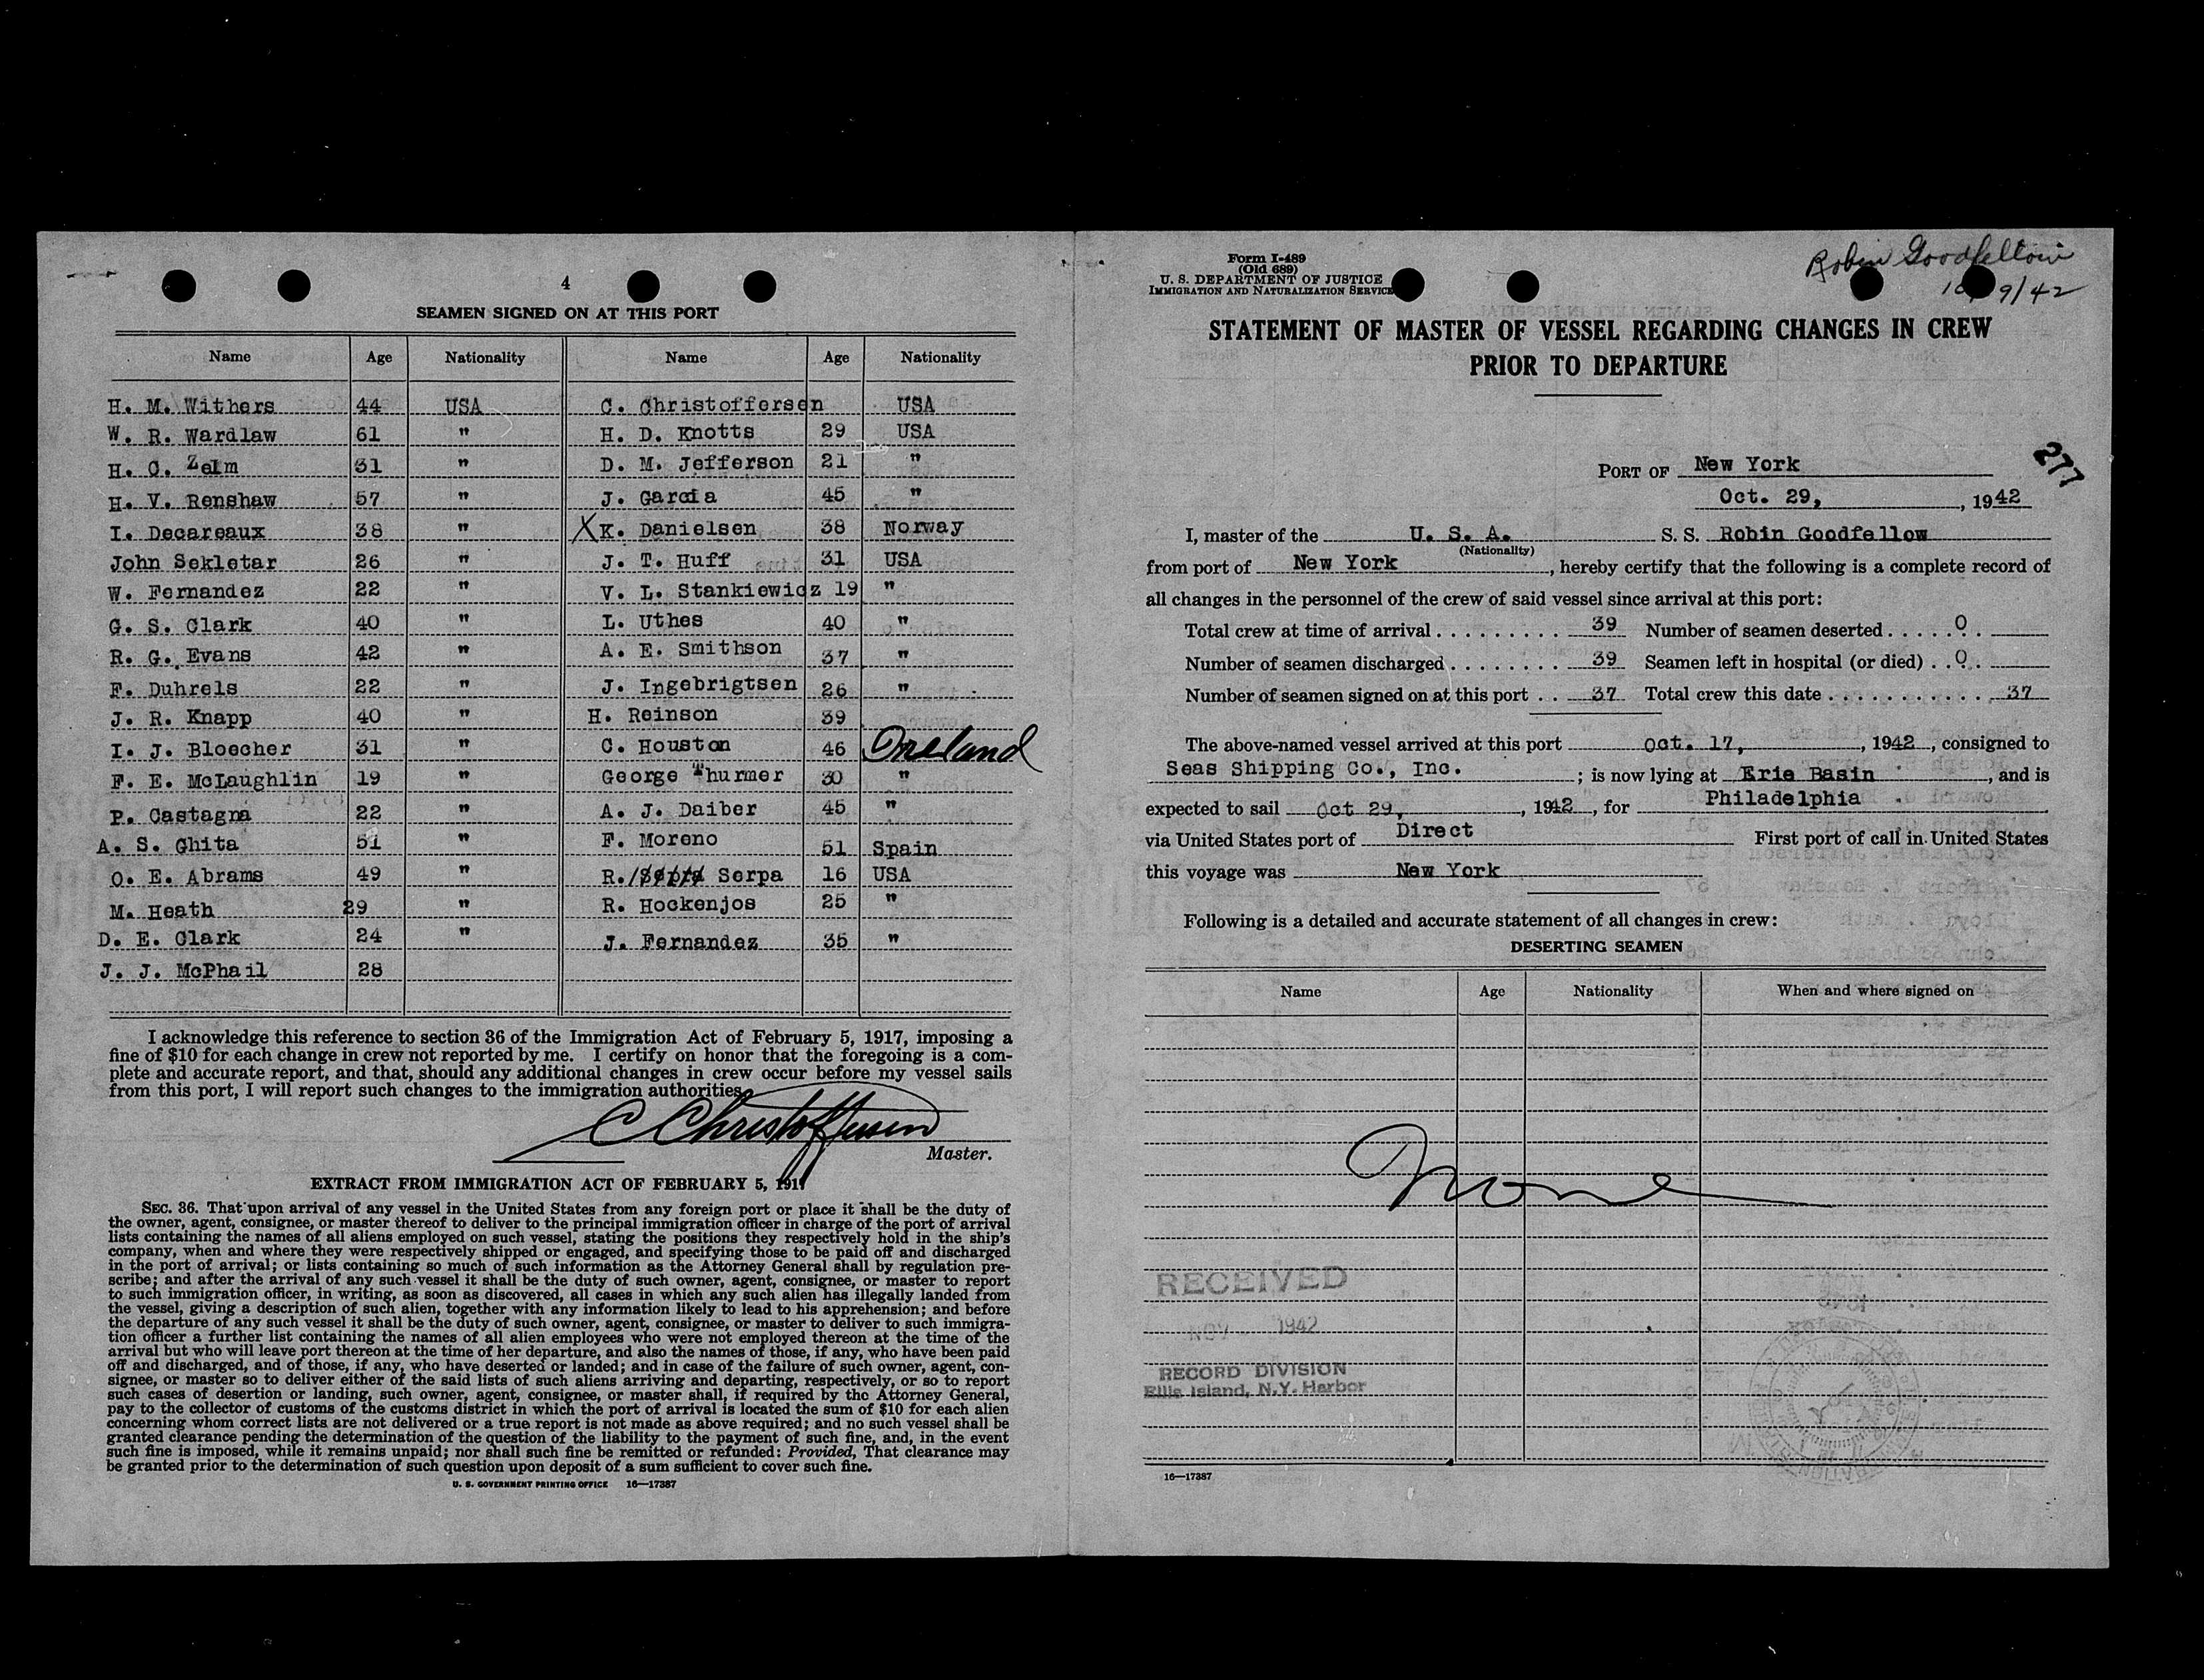 4
SEAMEN SIGNED ON AT THIS PORT
Name Age Nationality Name Age Nationality
H. M. Withers 44 USA C. Christoffersen USA
W. R. Wardlaw 61 " H. D. Knotts 29 USA
H. C. Zelm 31 " D. M. Jefferson 21 "
H. V. Renshaw 57 " J. Garcia 45 "
I. Decareaux 38 " X K. Danielsen 38 Norway
John Sekletar 26 " J. T. Huff 31 USA
W. Fernandez 22 " V. L. Stankiewicz 19 "
G. S. Clark 40 " L. Uthes 40 "
R. G. Evans 42 " A. E. Smithson 37 "
F. Duhrels 22 " J. Ingebrigtsen 26 "
J. R. Knapp 40 " H. Reinson 39
I. J. Bloecher 31 " C. Houston 46 Ireland
F. E. McLaughlin 19 " George Thurmer 30 "
P. Castagna 22 " A. J. Daiber 45 "
A. S. Ghita 51 " F. Moreno 51 Spain
O. E. Abrams 49 " R. Serpa 16 USA
M. Heath 29 " R. Hockenjos 25 "
D. E. Clark 24 " J. Fernandez 35 "
J. J. McPhail 28
I acknowledge this reference to section 36 of the Immigration Act of February 5, 1917, imposing a
fine of $10 for each change in crew not reported by me. I certify on honor that the foregoing is a com-
plete and accurate report, and that, should any additional changes in crew occur before my vessel sails
from this port, I will report such changes to the immigration authorities.
C Christoffersen
Master.
EXTRACT FROM IMMIGRATION ACT OF FEBRUARY 5, 1917
SEC. 36. That upon arrival of any vessel in the United States from any foreign port or place it shall be the duty of
the owner, agent, consignee, or master thereof to deliver to the principal immigration officer in charge of the port of arrival
lists containing the names of all aliens employed on such vessel, stating the positions they respectively hold in the ship's
company, when and where they were respectively shipped or engaged, and specifying those to be paid off and discharged
in the port of arrival; or lists containing so much of such information as the Attorney General shall by regulation pre-
scribe; and after the arrival of any such vessel it shall be the duty of such owner, agent, consignee, or master to report
to such immigration officer, in writing, as soon as discovered, all cases in which any such alien has illegally landed from
the vessel, giving a description of such alien, together with any information likely to lead to his apprehension; and before
the departure of any such vessel it shall be the duty of such owner, agent, consignee, or master to deliver to such immigra-
tion officer a further list containing the names of all alien employees who were not employed thereon at the time of the
arrival but who will leave port thereon at the time of her departure, and also the names of those, if any, who have been paid
off and discharged, and of those, if any, who have deserted or landed; and in case of the failure of such owner, agent, con-
signee, or master so to deliver either of the said lists of such aliens arriving and departing, respectively, or so to report
such cases of desertion or landing, such owner, agent, consignee, or master shall, if required by the Attorney General,
pay to the collector of customs of the customs district in which the port of arrival is located the sum of $10 for each alien
concerning whom correct lists are not delivered or a true report is not made as above required; and no such vessel shall be
granted clearance pending the determination of the question of the liability to the payment of such fine, and, in the event
such fine is imposed, while it remains unpaid; nor shall such fine be remitted or refunded: Provided, That clearance may
be granted prior to the determination of such question upon deposit of a sum sufficient to cover such fine.
U. S. GOVERNMENT PRINTING OFFICE 16—17387
Form I-489
(Old 689)
U. S. DEPARTMENT OF JUSTICE
IMMIGRATION AND NATURALIZATION SERVICE
Robin Goodfellow
9/42
STATEMENT OF MASTER OF VESSEL REGARDING CHANGES IN CREW
PRIOR TO DEPARTURE
277
PORT OF New York
Oct. 29, , 1942
I, master of the U. S. A. S. S. Robin Goodfellow
(Nationality)
from port of New York, hereby certify that the following is a complete record of
all changes in the personnel of the crew of said vessel since arrival at this port:
Total crew at time of arrival . . . . . . . . . . 39 Number of seamen deserted . . . . . 0
Number of seamen discharged . . . . . . . . 39 Seamen left in hospital (or died) . . 0
Number of seamen signed on at this port . . 37 Total crew this date . . . . . . . . . . . . 37
The above-named vessel arrived at this port Oct. 17, , 1942, consigned to
Seas Shipping Co., Inc. ; is now lying at Erie Basin, and is
expected to sail Oct 29, , 1942, for Philadelphia
via United States port of Direct First port of call in United States
this voyage was New York
Following is a detailed and accurate statement of all changes in crew:
DESERTING SEAMEN
Name Age Nationality When and where signed on
None
RECEIVED
NOV 1942
RECORD DIVISION
Ellis Island, N.Y. Harbor
16—17387